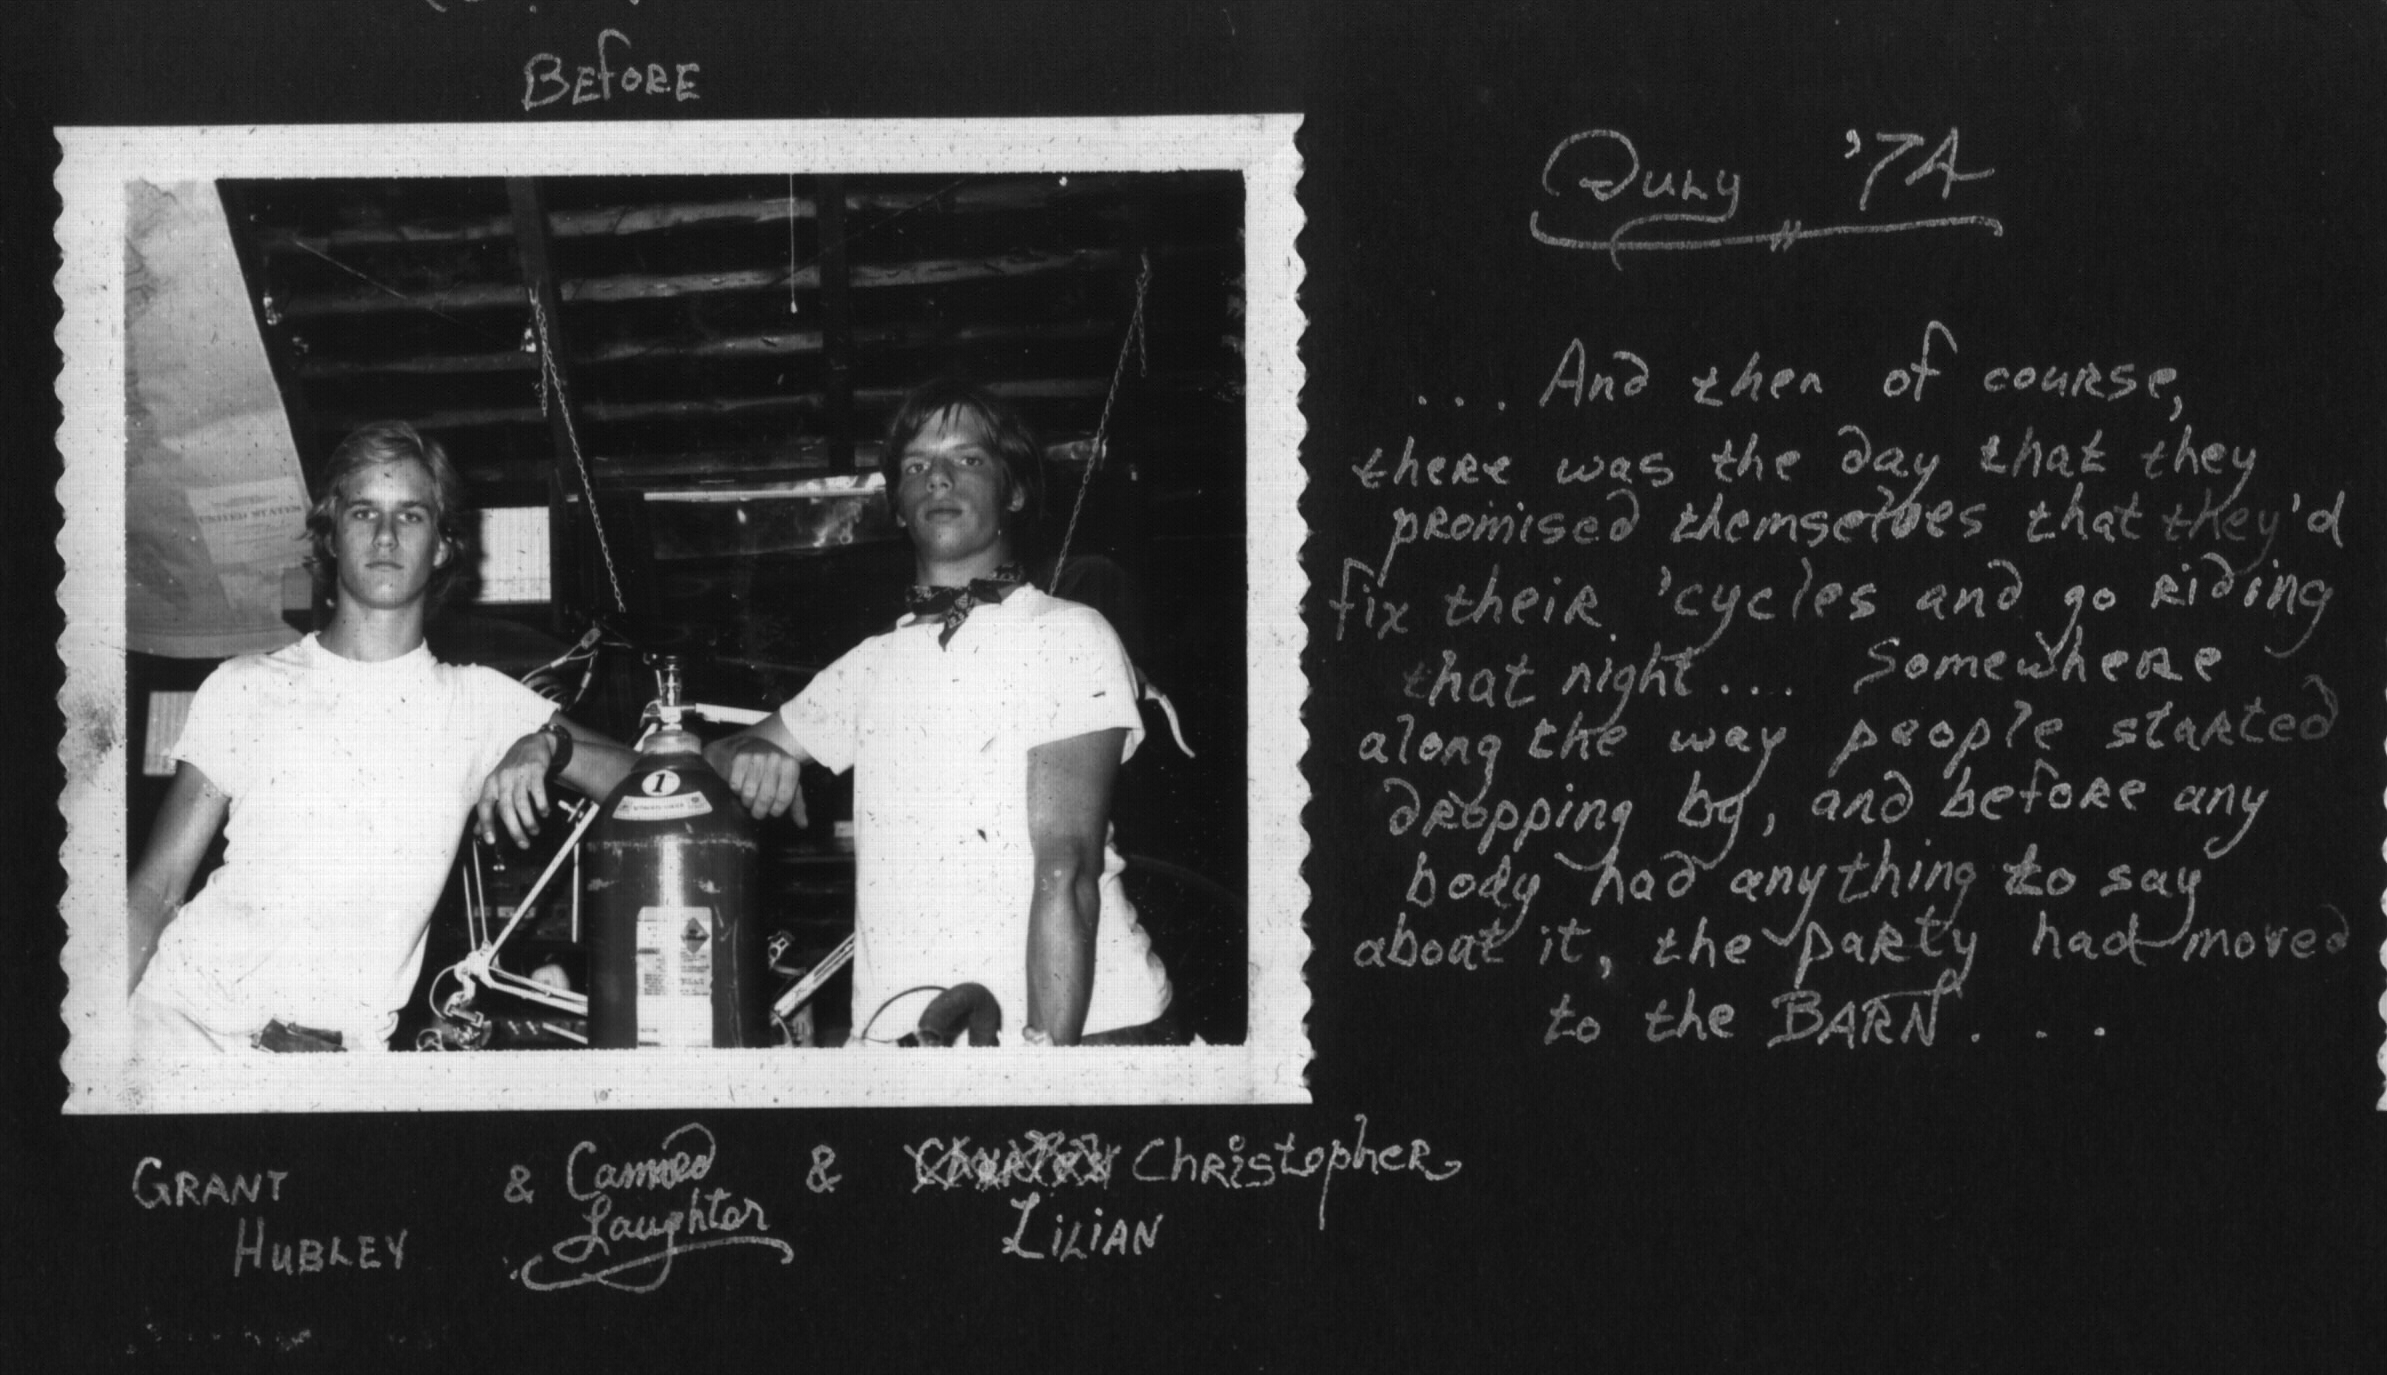 Before
July '74
... And then of course,
there was the day that they
promised themselves that they'd
fix their 'cycles and go riding
that night.... Somewhere
along the way people started
dropping by, and before any
body had anything to say
about it, the party had moved
to the BARN. . .
UNITED STATES
1
GRANT
HUBLEY
& Canned
Laughter
& Christopher
LILIAN